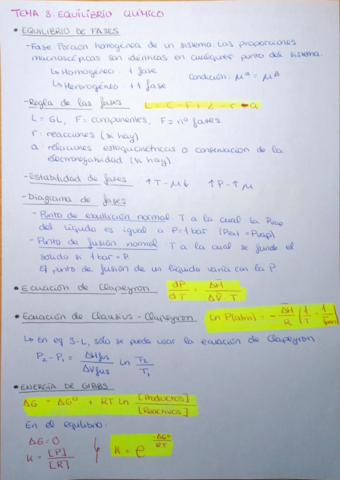 TEMA 3: EQUILIBRIO QUÍMICO
• EQUILIBRIO DE FASES
- Fase: Porción homogénea de un sistema. Las proporciones
macroscópicas son idénticas en cualquier punto del sistema.
↳ Homogéneo: 1 fase
↳ Heterogéneo: +1 fase
Condición: μᵅ = μᵝ
- Regla de las fases
L = C - F + 2 - r - a
L = GL, F = componentes, F = nº fases
r: reacciones (si hay)
a: relaciones estequiométricas o conservación de la
electronegatividad (si hay)
- Estabilidad de fases ↑T - μ↓ ↑P - ↑μ
- Diagrama de fases
- Punto de ebullición normal: T a la cual la Pvap
del líquido es igual a P = 1 bar (Pext = Pvap)
- Punto de fusión normal: T a la cual se funde el
sólido si 1 bar = P.
El punto de fusión de un líquido varía con la P
• Ecuación de Clapeyron: dP/dT = ΔH̄/ΔV̄·T
• Ecuación de Clausius-Clapeyron: Ln P(atm) = -ΔH̄/R (1/T - 1/Tpen)
↳ en eq S-L, sólo se puede usar la ecuación de Clapeyron
P₂ - P₁ = ΔH̄fus/ΔV̄fus ln T₂/T₁
• ENERGÍA DE GIBBS
ΔG = ΔG⁰ + RT ln [Productos]/[Reactivos]
En el equilibrio:
ΔG = 0
K = [P]/[R]
K = e^(-ΔG⁰/RT)